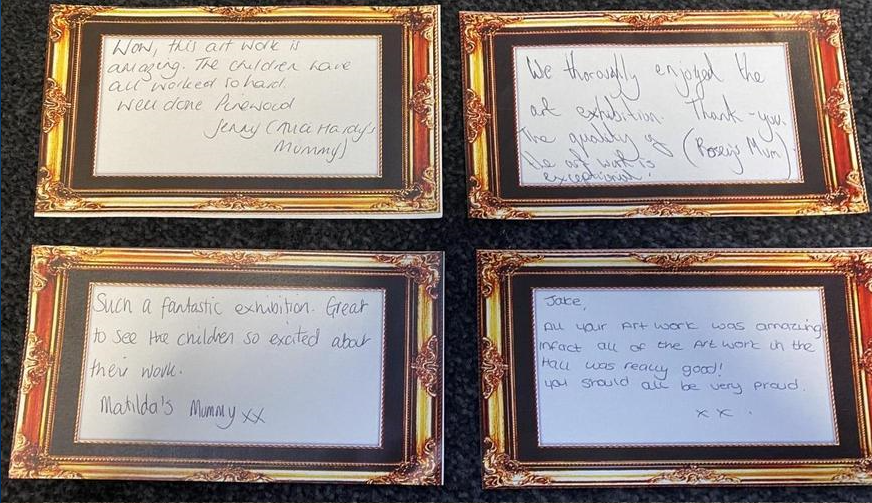 Wow, this art work is
amazing. The children have
all worked so hard.
Well done Pinewood
Jenny (Mia Hardy's
Mummy)
We thoroughly enjoyed the
art exhibition. Thank-you.
The quality of
the art work is
exceptional!
(Rosey's Mum)
Such a fantastic exhibition. Great
to see the children so excited about
their work.
Matilda's Mummy xx
Jake,
All your Art work was amazing
infact all of the Art work in the
Hall was really good!
you should all be very proud.
x x .